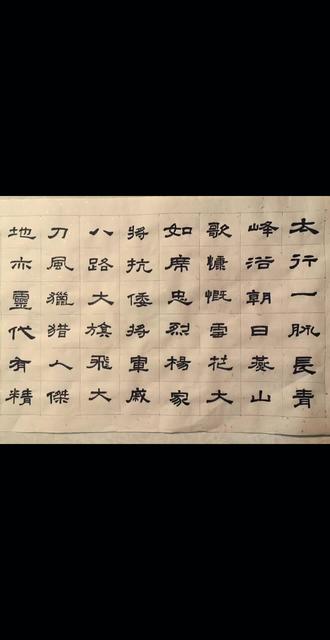 太行一脈長青
峰浴朝日燕山
歌慷慨雪花大
如席忠烈楊家
將抗倭將軍戚
八路大旗飛大
刀風獵猎人傑
地亦靈代有精